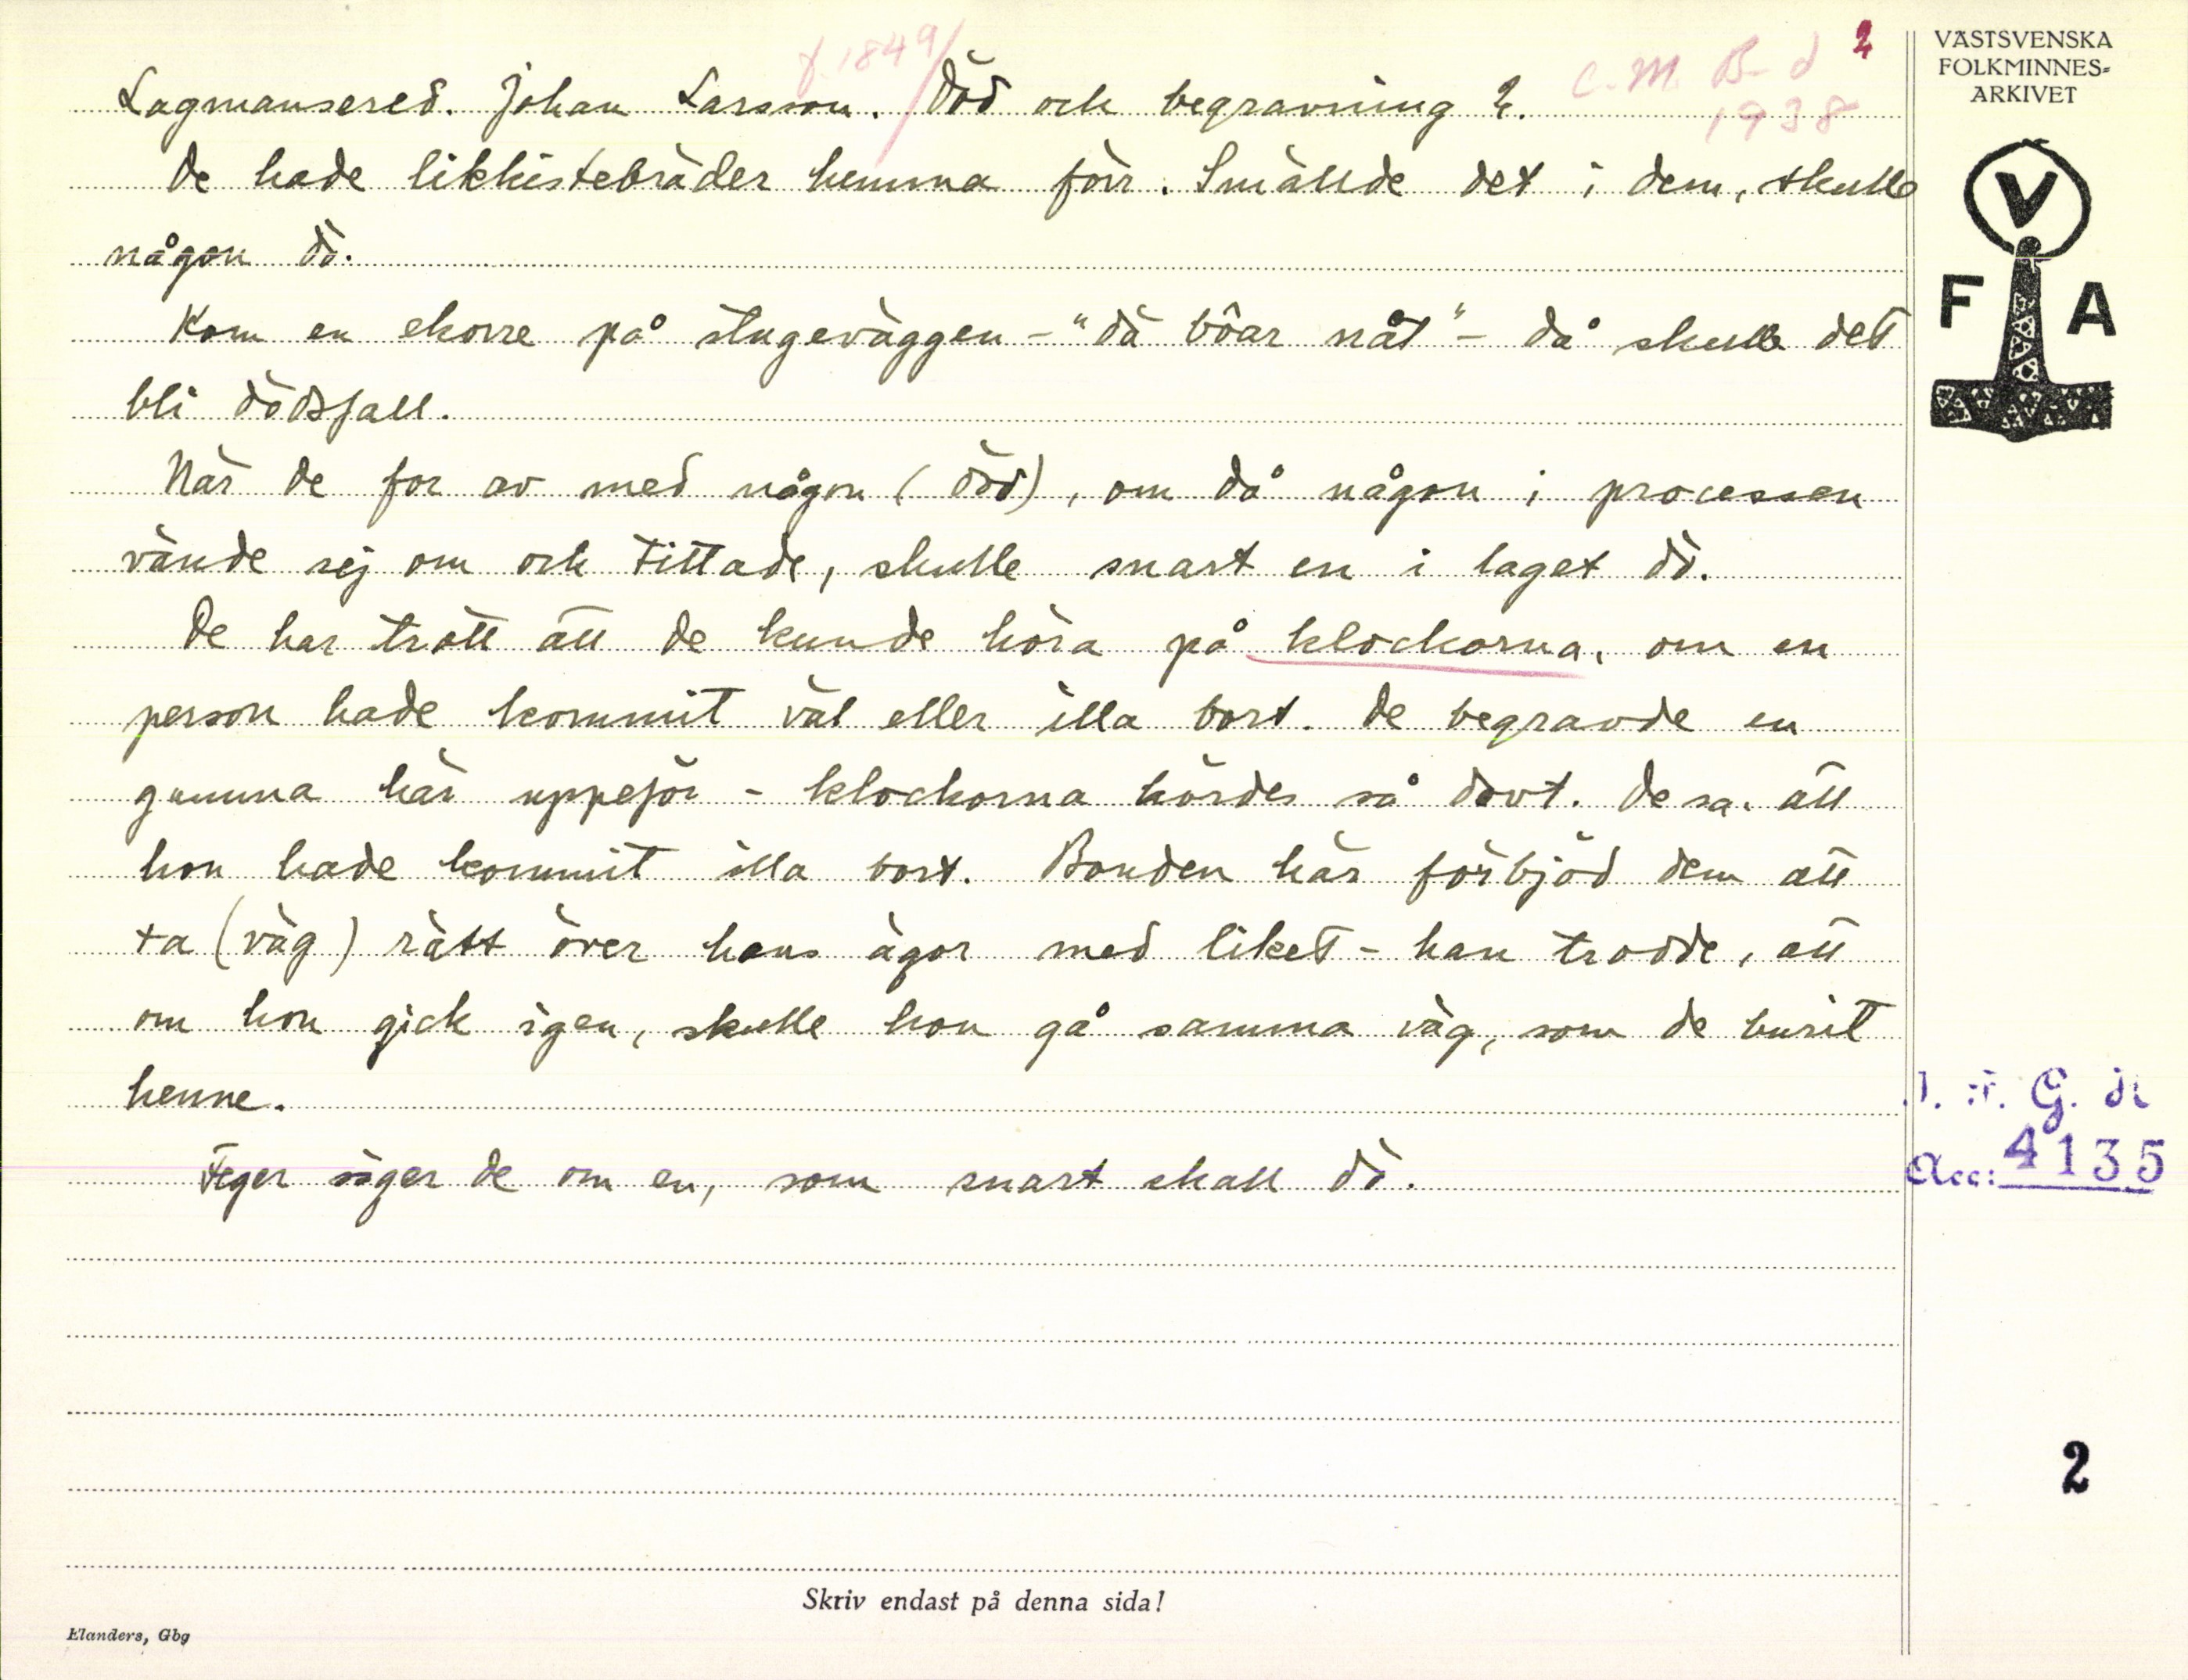 f. 1849/
C. M. B-d 2
1938
Lagmansered. Johan Larsson. Död och begravning 2.
De hade likkistebräder hemma förr. Smällde det i dem, skulle
någon dö.
Kom en ekorre på stugeväggen - "dä bôar nåt" - då skulle det
bli dödsfall.
När de for av med någon (död), om då någon i processen
vände sej om och tittade, skulle snart en i laget dö.
De har trott att de kunde höra på klockorna, om en
person hade kommit väl eller illa bort. De begravde en
gumma här uppeför - klockorna hördes så dovt. De sa, att
hon hade kommit illa bort. Bonden här förbjöd dem att
ta (väg) rätt över hans ägor med liket - han trodde, att
om hon gick igen, skulle hon gå samma väg, som de burit
henne.
Feger säger de om en, som snart skall dö.
VÄSTSVENSKA
FOLKMINNES-
ARKIVET
V
F A
G.
Acc: 4135
2
Skriv endast på denna sida!
Elanders, Gbg